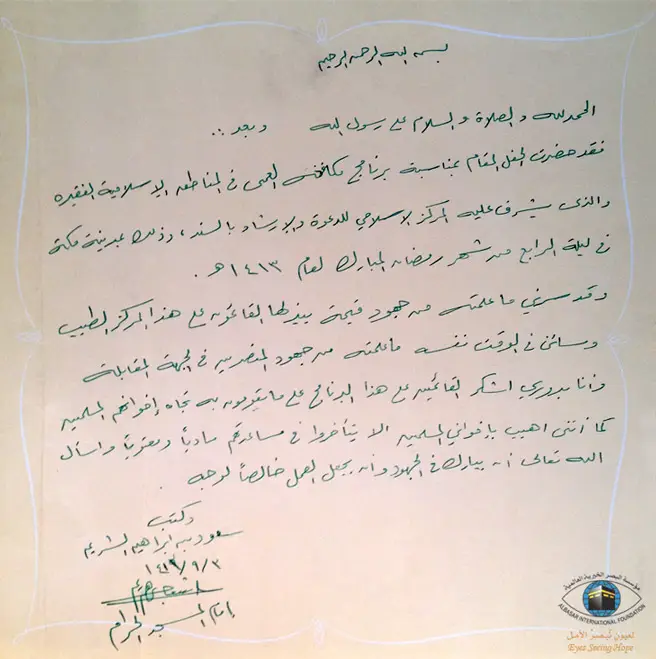 بسم الله الرحمن الرحيم
الحمد لله والصلاة والسلام على رسول الله وبعد ..
فقد حضرت الحفل المقام بمناسبة برنامج مكافحة العمى في المناطق الإسلامية الفقيره
والذي يشرف عليه المركز الإسلامي للدعوة والإرشاد بالسند ، وذلك بمدينة مكة
في ليلة الرابع من شهر رمضان المبارك لعام ١٤١٣ هـ .
وقد سرني ما علمته من جهود قيمة يبذلها القائمون على هذا المركز الطيب
وساءني في الوقت نفسه ما علمته من جهود المنصرين في الجهة المقابلة
وأنا بدوري أشكر القائمين على هذا البرنامج على ما يقومون به تجاه إخوانهم المسلمين
كما أنني أهيب بإخواني المسلمين ألا يتأخروا في مساعدتهم مادياً ومعنوياً وأسأل
الله تعالى أن يبارك في الجهود وأن يجعل العمل خالصاً لوجهه .
وكتب
سعود بن ابراهيم الشريم
إمام المسجد الحرام
مؤسسة البصر الخيرية العالمية
ALBASAR INTERNATIONAL FOUNDATION
لعيون تُبصرُ الأمل
Eyes Seeing Hope